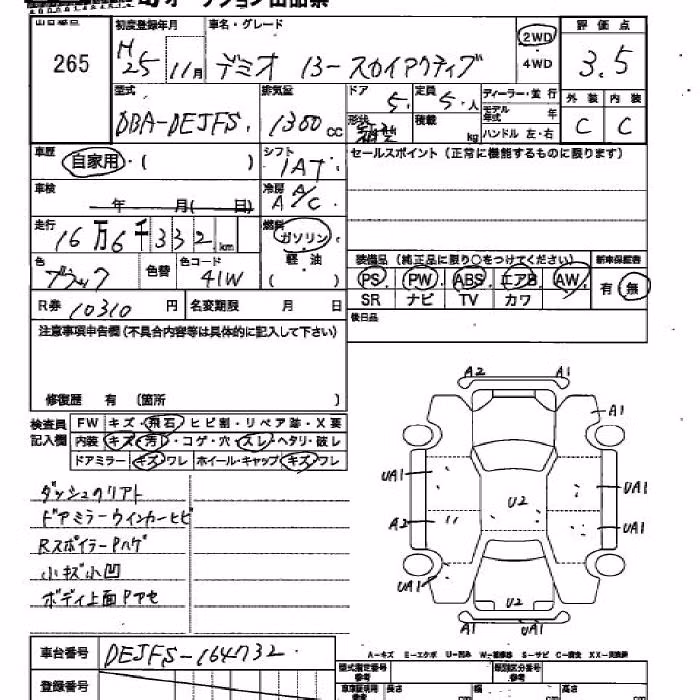 初度登録年月 車名・グレード 2WD 評価点
265 H25 11月 デミオ 13-スカイアクティブ 4WD 3.5
型式 排気量 ドア 定員 ディーラー・並行 外装 内装
DBA-DEJFS. 1300cc 5. 5.人 モデル年式 年 C C
形状 積載 kg ハンドル 左・右
車歴 自家用・( ) シフト 1AT セールスポイント(正常に機能するものに限ります)
車検 年 月( 日) 冷房 A/C
走行 16万6千332km 燃料 ガソリン
軽油
色 ブラック 色替 色コード 41W ( )
装備品(純正品に限り○をつけてください) 新車保証書
PS PW ABS エアB AW 有・無
SR ナビ TV カワ
R券 10310円 名変期限 月 日 後日品
注意事項申告欄(不具合内容等は具体的に記入して下さい)
修復歴 有 〔箇所 〕
検査員記入欄 FW キズ・飛石・ヒビ割・リペア跡・X要
内装 キズ・汚・コゲ・穴・スレ・ヘタリ・破レ
ドアミラー キズ・ワレ ホイール・キャップ キズ・ワレ
ダッシュクリアト
ドアミラーウインカーヒビ
RスポイラーPハゲ
小キズ小凹
ボディ上面Pアセ
A2 A1
A1
UA1 UA1
U2
A2 UA1
UA1
U2
A1 UA1
A-キズ E-エクボ U-凹み W-補修跡 S-サビ C-腐食 XX-交換跡
車台番号 DEJFS-164732
登録番号
型式指定番号 参考 類別区分番号 参考
長さ cm 幅 cm 高さ cm